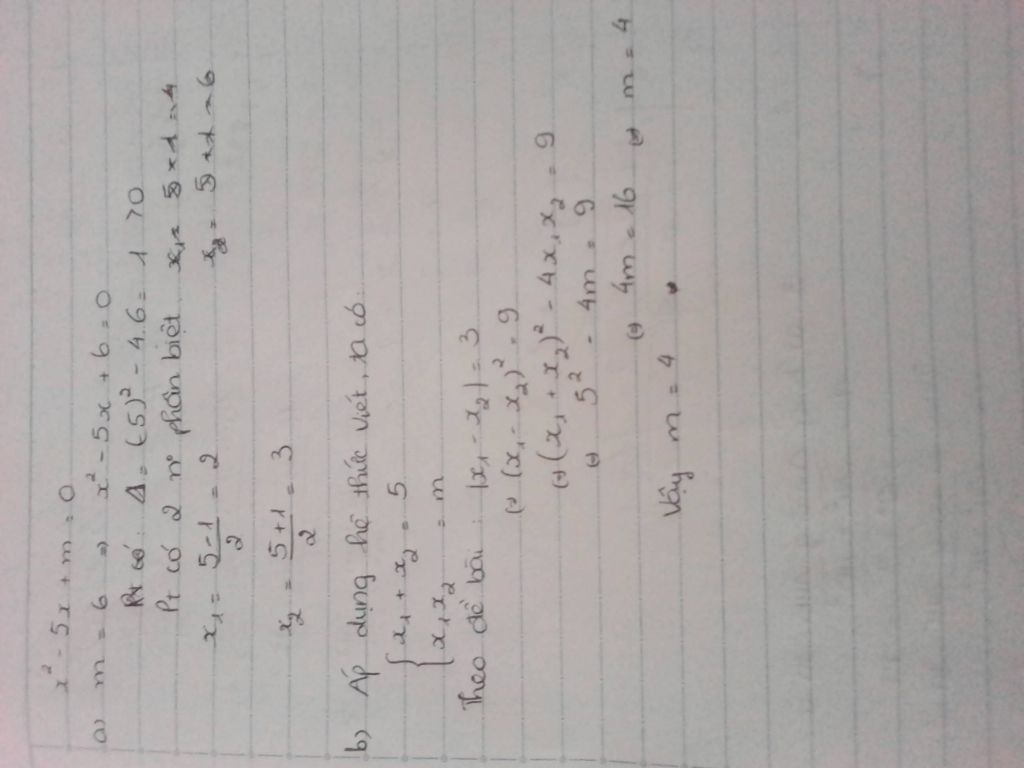 x² - 5x + m = 0
a) m = 6 => x² - 5x + 6 = 0
Pt có: Δ = (-5)² - 4.6 = 1 > 0
Pt có 2 n° phân biệt
x₁ = 5-1/2 = 2
x₂ = 5+1/2 = 3
b) Áp dụng hệ thức Viét, ta có:
{ x₁ + x₂ = 5
x₁x₂ = m
Theo đề bài: |x₁ - x₂| = 3
(=) (x₁ - x₂)² = 9
(=) (x₁ + x₂)² - 4x₁x₂ = 9
(=) 5² - 4m = 9
(=) 4m = 16 (=) m = 4
Vậy m = 4.